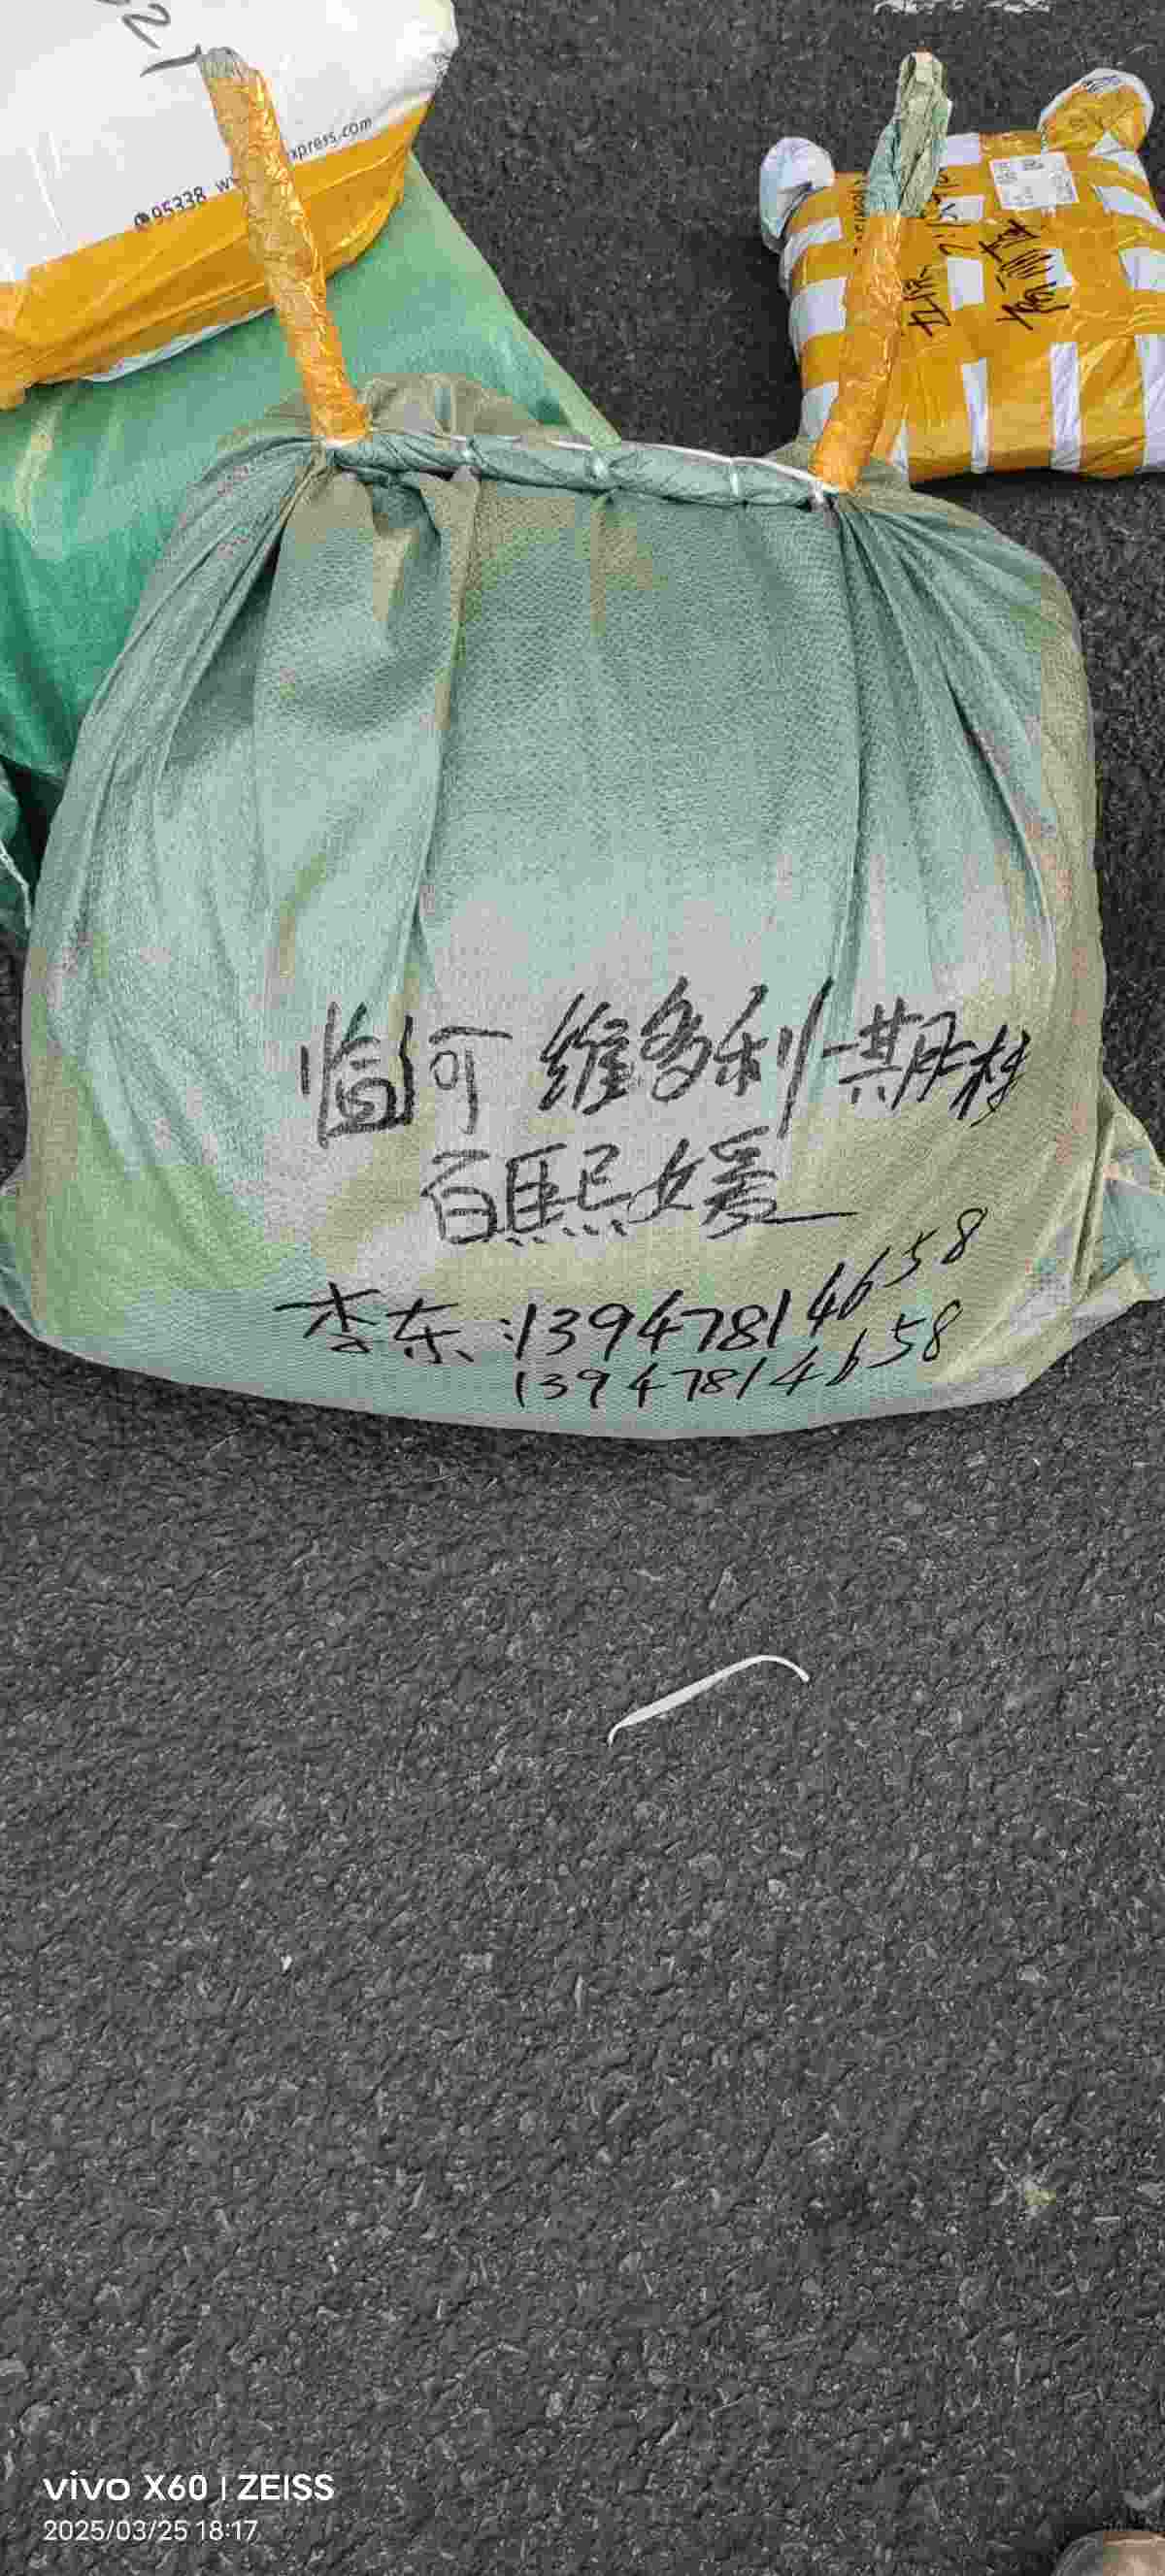 95338
xpress.com
临河 维多利一期
百熙媛
李东:13947814658
13947814658
vivo X60 | ZEISS
2025/03/25 18:17